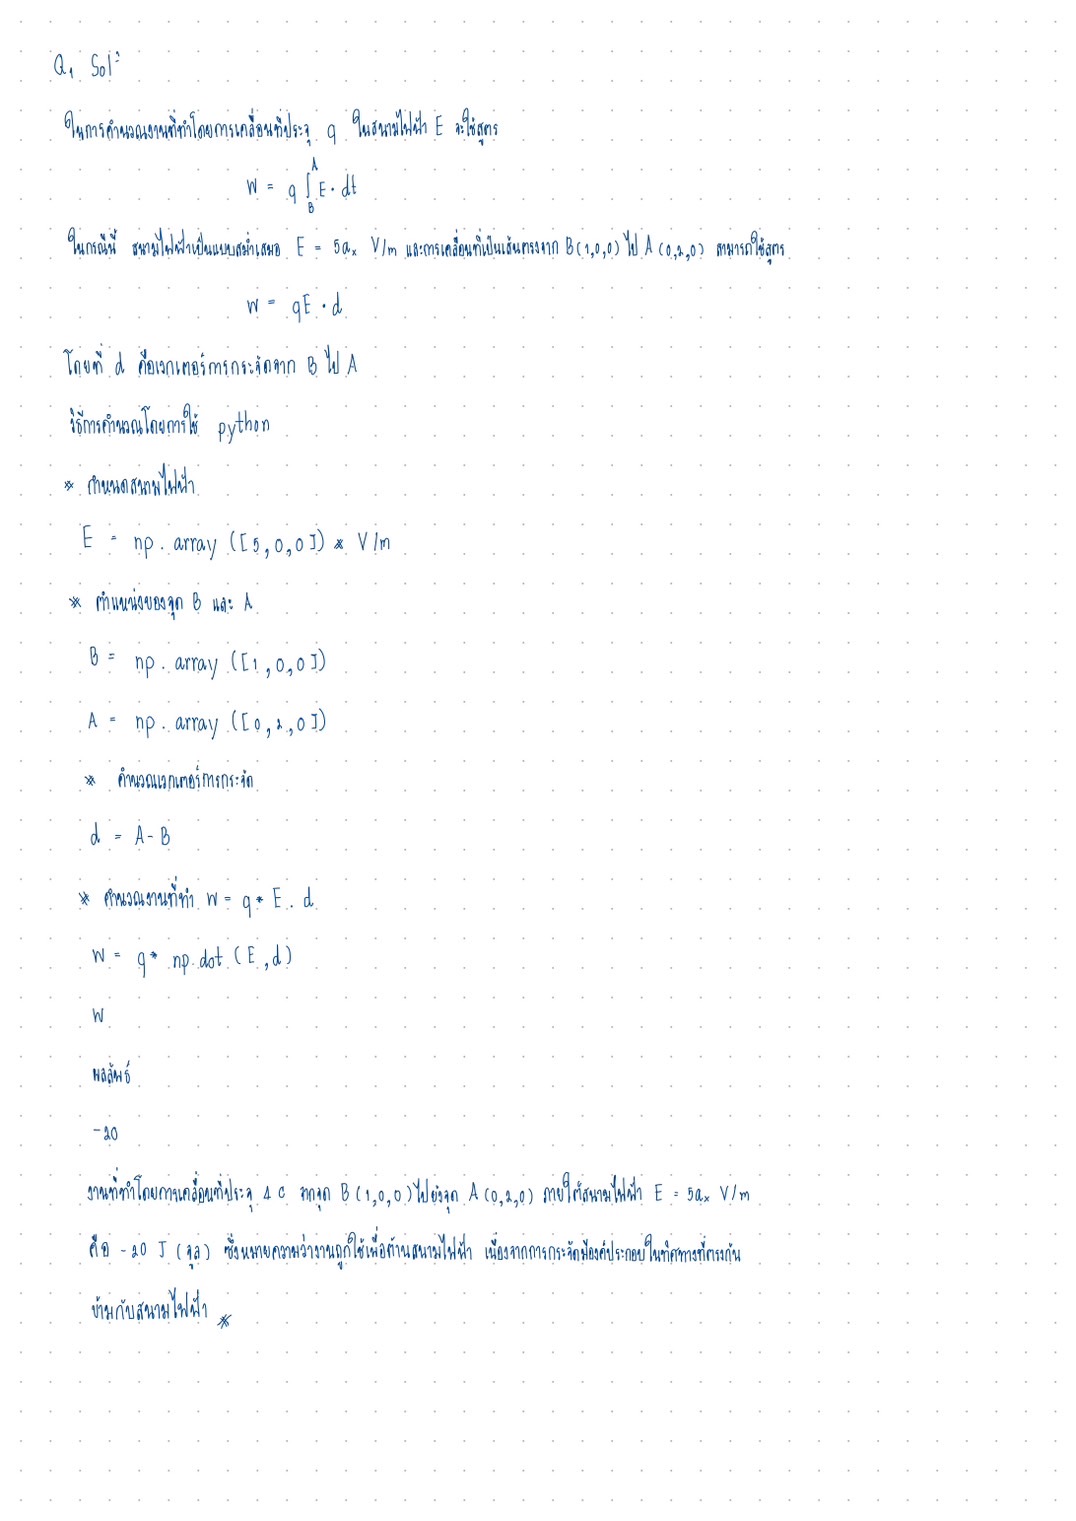 Q1 Solⁿ
ในการคำนวณงานที่ทำโดยการเคลื่อนที่ประจุ q ในสนามไฟฟ้า E จะใช้สูตร
W = q ∫_B^A E · dt
ในกรณีนี้ สนามไฟฟ้าเป็นแบบสม่ำเสมอ E = 5aₓ V/m และการเคลื่อนที่เป็นเส้นตรงจาก B(1,0,0) ไป A(0,2,0) สามารถใช้สูตร
W = qE · d
โดยที่ d คือเวกเตอร์การกระจัดจาก B ไป A
วิธีการคำนวณโดยการใช้ python
* กำหนดสนามไฟฟ้า
E = np.array([5,0,0]) * V/m
* ตำแหน่งของจุด B และ A
B = np.array([1,0,0])
A = np.array([0,2,0])
* คำนวณเวกเตอร์การกระจัด
d = A-B
* คำนวณงานที่ทำ W = q * E . d
W = q* np.dot (E,d)
W
ผลลัพธ์
-20
งานที่ทำโดยการเคลื่อนที่ประจุ 4 C จากจุด B(1,0,0) ไปยังจุด A(0,2,0) ภายใต้สนามไฟฟ้า E = 5aₓ V/m
คือ -20 J (จูล) ซึ่งหมายความว่างานถูกใช้เพื่อต้านสนามไฟฟ้า เนื่องจากการกระจัดมีองค์ประกอบในทิศทางที่ตรงกัน
ข้ามกับสนามไฟฟ้า *